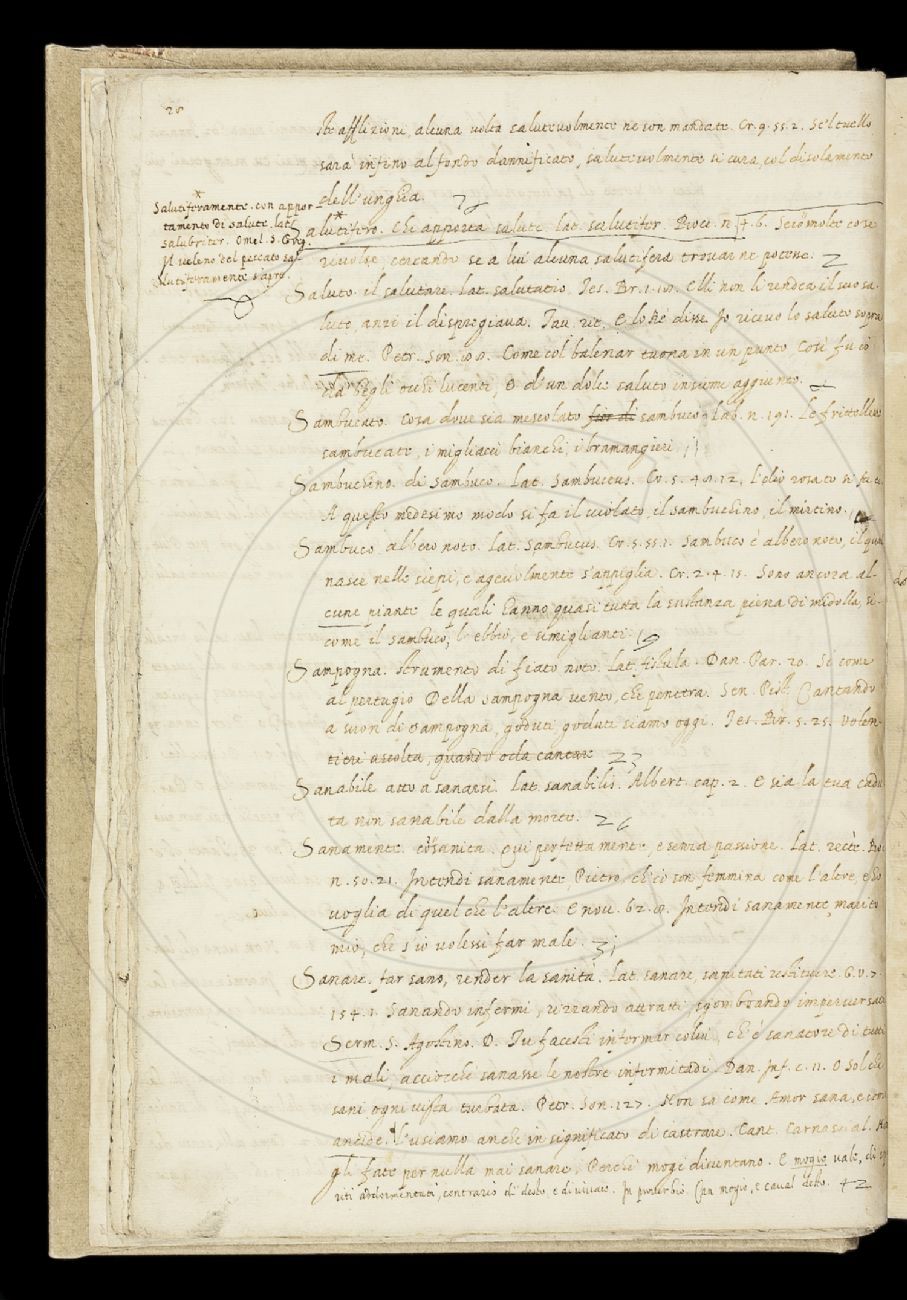 28
ste afflizioni alcuna volta salutevolmente ne son mandate. Cr. 9. 55. 2. Se'l tuello
sarà infino al fondo dannificato, salutevolmente si cura, col disolamento
dell'unghia.
Salutiferamente. con appor-
tamento di salute. lat.
salubriter. Omel. S. Greg.
Il veleno del peccato sa-
lutiferamente s'apre
Salutifero. Che apporta salute. lat. salutifer. Bocc. n. 4. 6. Seco molte cose
rivolse, cercando se a lui alcuna salutifera trovar ne potesse.
Saluto. il salutare. Lat. salutatio. Tes. Br. 1. Elli non li rendea il suo sa-
luto, anzi il dispregiava. Tav. rit. E lo Rè disse. Io ricevo lo saluto sopra
di me. Petr. Son. Come col balenar tuona in un punto Così fu'io
da begli occhi lucenti, E d'un dolce saluto insieme aggiunto.
Sambucato. Cosa dove sia mescolato fior di sambuco. Lab. n. 191. Le frittelle
sambucate, i migliacci bianchi, i bramangieri
Sambuchino. di Sambuco. Lat. Sambuceus. Cr. 5. 48. 12. L'olio rosato si fa
A questo medesimo modo si fa il violato, il sambuchino, il mirtino.
Sambuco, albero noto. Lat. Sambucus. Cr. 5. 55. 1. Sambuco è albero noto, il qual
nasce nelle siepi, e agevolmente s'appiglia. Cr. 2. 4. 15. Sono ancora al-
cune piante le quali hanno quasi tutta la sustanza piena di midolla, si-
come il sambuco, l'ebbio, e simiglianti.
Sampogna. strumento di fiato noto. Lat. fistula. Dan. Par. 20. Sì come
al pertugio Della sampogna vento, che penetra. Sen. Pist. Cantando
a suon di sampogna, goduti goduti siamo oggi. Tes. Br. 5. 25. Volen-
tieri ascolta, quando ode cantare
Sanabile atto a sanarsi. Lat. sanabilis. Albert. cap. 2. E sia la tua cadu-
ta non sanabile dalla morte.
Sanamente. con sanità. qui perfettamente, e senza passione. Lat. rectè. Boc.
n. 50. 21. Intendi sanamente, Pietro, ch'io son femmina come l'altre, e ho
voglia di quel che l'altre. E nov. 62. 8. Intendi sanamente, marito
mio, che s'io volessi far male.
Sanare. far sano, render la sanità. Lat. sanare, sanitati restituere. G. V. 7.
154. 1. Sanando infermi, rizzando attratti, sgombrando imperversati
Serm. S. Agostino. D. Tu facesti infermar colui, ch'è sanatore di tutti
i mali, acciocchè sanasse le nostre infermitadi. Dan. Inf. c. 11. O Sol che
sani ogni vista turbata. Petr. Son. 127. Non sa come Amor sana, e come
ancide. L'usiamo anche in significato di castrare. Cant. Carnasc. al. Ma
gli fate per nulla mai sanare, Perchè mogi diventano. E mogio vale, di spi-
riti addormentati, contrario di desto, e di vivace. In proverbio. Gran mogio, e caval desto.